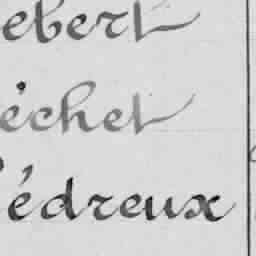 ebert
échet
édreux